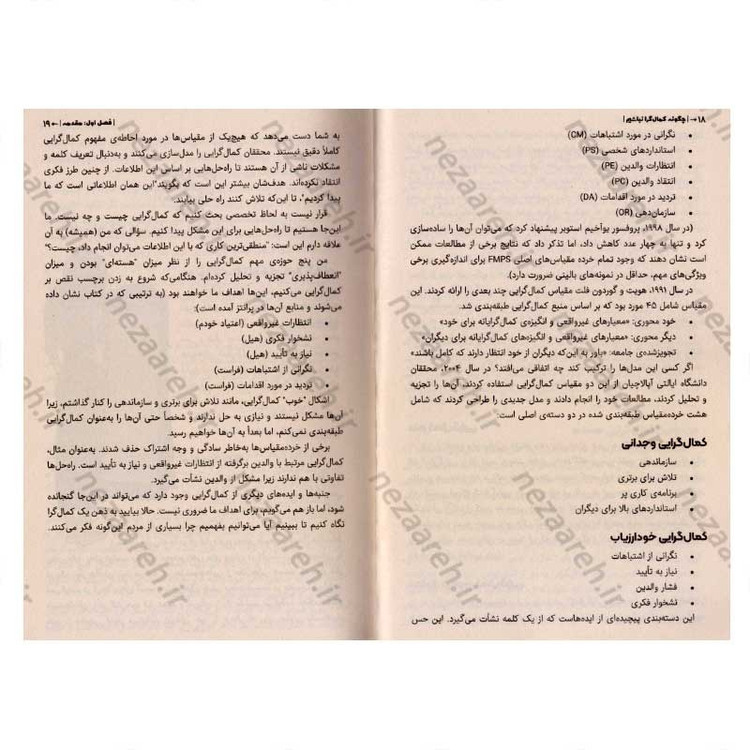 ۱۸ | چگونه کمال‌گرا نباشیم |
• نگرانی در مورد اشتباهات (CM)
• استانداردهای شخصی (PS)
• انتظارات والدین (PE)
• انتقاد والدین (PC)
• تردید در مورد اقدامات (DA)
• سازمان‌دهی (OR)
(در سال ۱۹۹۸، پروفسور یوآخیم استوبر پیشنهاد کرد که می‌توان آن‌ها را ساده‌سازی
کرد و تنها به چهار عدد کاهش داد، اما تذکر داد که نتایج برخی از مطالعات ممکن
است نشان دهند که وجود تمام خرده مقیاس‌های اصلی FMPS برای اندازه‌گیری برخی
ویژگی‌های مهم، حداقل در نمونه‌های بالینی ضرورت دارد).
در سال ۱۹۹۱، هویت و گوردون فلت مقیاس کمال‌گرایی چند بعدی را ارائه کردند. این
مقیاس شامل ۴۵ مورد بود که بر اساس منبع کمال‌گرایی طبقه‌بندی شد.
• خود محوری: «معیارهای غیرواقعی و انگیزه‌ی کمال‌گرایانه برای خود»
• دیگر محوری: «معیارهای غیرواقعی و انگیزه‌های کمال‌گرایانه برای دیگران»
• تجویزشده‌ی جامعه: «باور به این‌که دیگران از خود انتظار دارند که کامل باشند»
اگر کسی این مدل‌ها را ترکیب کند چه اتفاقی می‌افتد؟ در سال ۲۰۰۴، محققان
دانشگاه ایالتی آپالاچیان از این دو مقیاس کمال‌گرایی استفاده کردند، آن‌ها را تجزیه
و تحلیل کردند، مطالعات خود را انجام دادند و مدل جدیدی را طراحی کردند که شامل
هشت خرده‌مقیاس طبقه‌بندی شده در دو دسته‌ی اصلی است:
کمال‌گرایی وجدانی
• سازماندهی
• تلاش برای برتری
• برنامه‌ی کاری پر
• استانداردهای بالا برای دیگران
کمال‌گرایی خودارزیاب
• نگرانی از اشتباهات
• نیاز به تأیید
• فشار والدین
• نشخوار فکری
این دسته‌بندی پیچیده‌ای از ایده‌هاست که از یک کلمه نشأت می‌گیرد. این حس
| فصل اول: مقدمه | ۱۹
به شما دست می‌دهد که هیچ‌یک از مقیاس‌ها در مورد احاطه‌ی مفهوم کمال‌گرایی
کاملاً دقیق نیستند. محققان کمال‌گرایی را مدل‌سازی می‌کنند و به‌دنبال تعریف کلمه و
مشکلات ناشی از آن هستند تا راه‌حل‌هایی بر اساس این اطلاعات. از چنین طرز فکری
انتقاد نکرده‌اند. هدف‌شان بیشتر این است که بگویند"این همان اطلاعاتی است که ما
پیدا کردیم"، تا این‌که تلاش کنند راه حلی بیابند.
قرار نیست به لحاظ تخصصی بحث کنیم که کمال‌گرایی چیست و چه نیست. ما
این‌جا هستیم تا راه‌حل‌هایی برای این مشکل پیدا کنیم. سؤالی که من (همیشه) به آن
علاقه دارم این است: "منطقی‌ترین کاری که با این اطلاعات می‌توان انجام داد، چیست؟"
من پنج حوزه‌ی مهم کمال‌گرایی را از نظر میزان "هسته‌ای" بودن و میزان
"انعطاف‌پذیری" تجزیه و تحلیل کرده‌ام. هنگامی‌که شروع به زدن برچسب نقص بر
کمال‌گرایی می‌کنیم، این‌ها اهداف ما خواهند بود (به ترتیبی که در کتاب نشان داده
می‌شوند و منابع آن‌ها در پرانتز آمده است):
• انتظارات غیرواقعی (اعتیاد خودم)
• نشخوار فکری (هیل)
• نیاز به تأیید (هیل)
• نگرانی از اشتباهات (فراست)
• تردید در مورد اقدامات (فراست)
اشکال "خوب" کمال‌گرایی، مانند تلاش برای برتری و سازماندهی را کنار گذاشتم، زیرا
آن‌ها مشکل نیستند و نیازی به حل ندارند و شخصاً حتی آن‌ها را به‌عنوان کمال‌گرایی
طبقه‌بندی نمی‌کنم، اما بعداً به آن‌ها خواهیم رسید.
برخی از خرده‌مقیاس‌ها به‌خاطر سادگی و وجه اشتراک حذف شدند. به‌عنوان مثال،
کمال‌گرایی مرتبط با والدین برگرفته از انتظارات غیرواقعی و نیاز به تأیید است. راه‌حل‌ها
تفاوتی با هم ندارند زیرا مشکل از والدین نشأت می‌گیرد.
جنبه‌ها و ایده‌های دیگری از کمال‌گرایی وجود دارد که می‌تواند در این‌جا گنجانده
شود، اما باز هم می‌گویم، برای اهداف ما ضروری نیست. حالا بیایید به ذهن یک کمال‌گرا
نگاه کنیم تا ببینیم آیا می‌توانیم بفهمیم چرا بسیاری از مردم این‌گونه فکر می‌کنند.
nezaareh.ir
nezaareh.ir
nezaareh.ir
nezaareh.ir
nezaareh.ir
nezaareh.ir